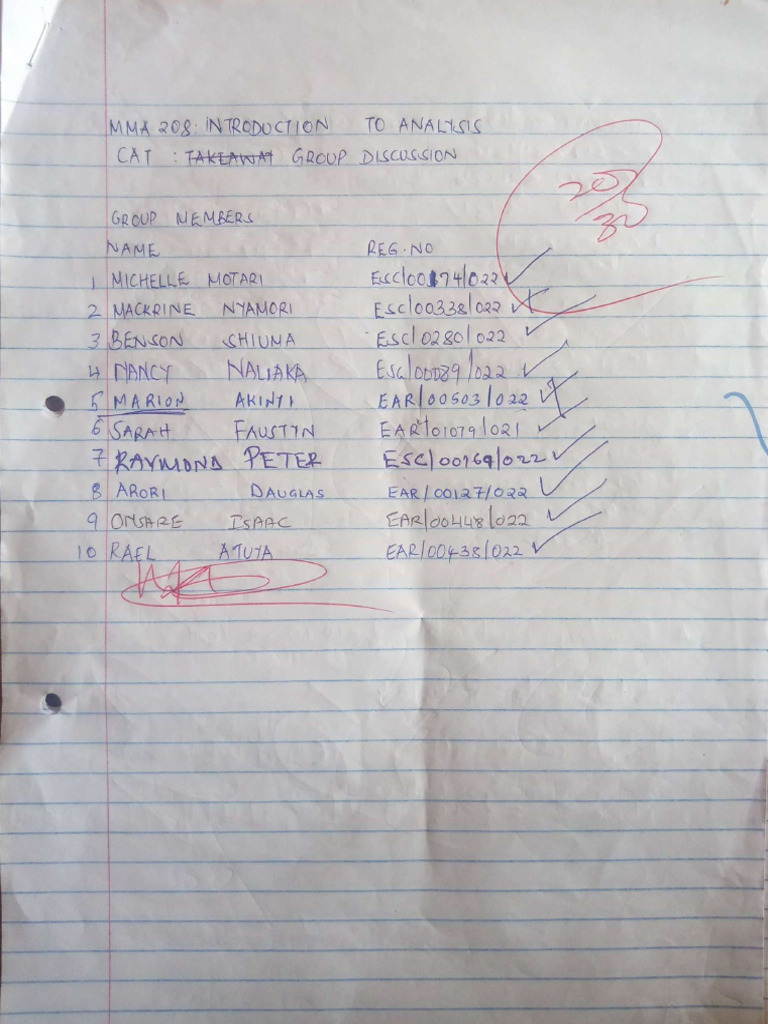 MMA 208: INTRODUCTION TO ANALYSIS
CAT : TAKEAWAY GROUP DISCUSSION
20
/30
GROUP MEMBERS
NAME REG.NO
1 MICHELLE MOTARI ESC/00174/022
2 MACKRINE NYAMORI ESC/00338/022
3 BENSON SHIUMA ESC/0280/022
4 NANCY NALIAKA ESC/00089/022
5 MARION AKINYI EAR/00503/022
6 SARAH FAUSTYN EAR/01079/021
7 RAYMOND PETER ESC/00169/022
8 ARORI DAUGLAS EAR/00127/022
9 ONSARE ISAAC EAR/00448/022
10 RAEL ATUYA EAR/00438/022